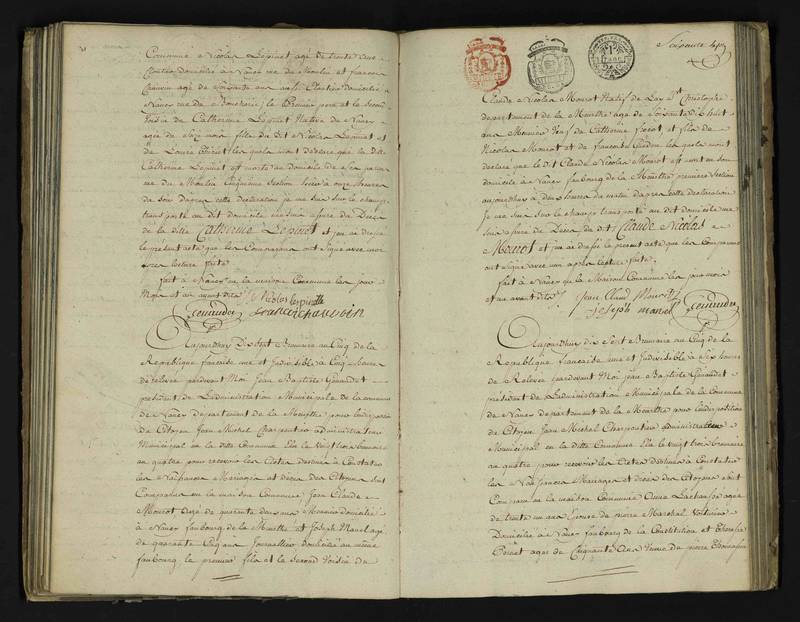 Commune Nicolas Lepinet agé de trente ans
Cloutier domicilié à Nancy rue du Moulin et francois
Chauvin agé de soixante ans aussi Cloutier domicilié
à Nancy rue de la Boucherie; le premier pere et le second
voisin de Catherine Lepinet Native de Nancy
agée de six mois fille du dit Nicolas Lepinet et
de Louise lesquels m'ont declaré que la dite
Catherine Lepinet est morte au domicile de son pere
rue du Moulin Cinquieme Section hier à onze heures
du Soir D'après cette déclaration je me suis sur le champ
transporté au dit domicile me suis assuré du Décès
de la ditte Catherine Lepinet et j'ai dressé
le présent acte que les Comparans ont signé avec moi
après lecture faite.
fait à Nancy en la maison Commune les jour
Mois et an avant dits
Nicolas lepinette
francois chauvoin
Aujourdhuy Dixsept Brumaire an Cinq de la
République francaise une et Indivisible à Cinq heures
de relevée pardevant Moi Jean Baptiste
président de Ladministration Municipale de la commune
de Nancy departement de la Meurthe pour lindisposition
du Citoyen Jean Michel Charpentier administrateur
Municipal en la ditte Commune Elu le vingt trois brumaire
an quatre pour recevoir les Actes destinés à Constater
les Naissances Mariages et décès des Citoyens Sont
Comparus en la maison Commune Jean Claude
Mourot agé de quarante deux ans Menusier Domicilié
à Nancy faubourg de la Meurthe et Joseph Marcel agé
de quarante Cinq ans Journallier domicilié au même
faubourg le premier fils et le Second Voisin de
Claude Nicolas Mourot Natif de Lay St Christophe
departement de la Meurthe age de Soixante dix huit
ans Menusier Veuf de Catherine et fils de
Nicolas Mourot et de francoise lesquels m'ont
declaré que le dit Claude Nicolas Mourot est mort en son
domicile à Nancy faubourg de la Meurthe première Section
aujourdhuy à deux heures du matin d'après cette déclaration
je me suis sur le champ transporté au dit domicile me
suis assuré du Décès du dit Claude Nicolas
Mourot et j'ai dressé le présent acte que les Comparans
ont signé avec moi après lecture faite.
fait à Nancy en la Maison Commune les jour mois
et an avant dits
Jean Claud Mourot
Joseph marcel
Aujourdhuy dix Sept Brumaire an Cinq de la
République francaise une et indivisible à Six heures
de Relevée pardevant Moi Jean Baptiste
président de Ladministration Municipale de la Commune
de Nancy departement de la Meurthe pour lindisposition
du Citoyen Jean Michel Charpentier administrateur
Municipal en la ditte Commune Elu le vingt trois brumaire
an quatre pour recevoir les Actes destinés à Constater
les Naissances Mariages et décès des Citoyens est
Comparu en la maison Commune agée
de trente un ans Epouse de
Domiciliée à Nancy faubourg de la Constitution et
agée de Cinquante deux Veuve de pierre